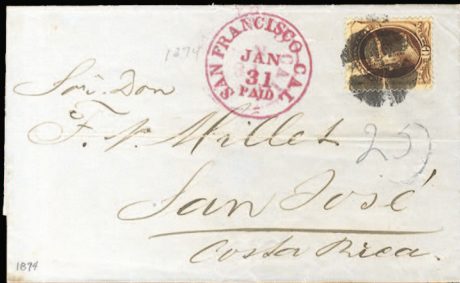 SAN FRANCISCO CAL.
JAN
31
PAID
1874
Sor. Don
F. N. Millet
25
San José
Costa Rica.
1874